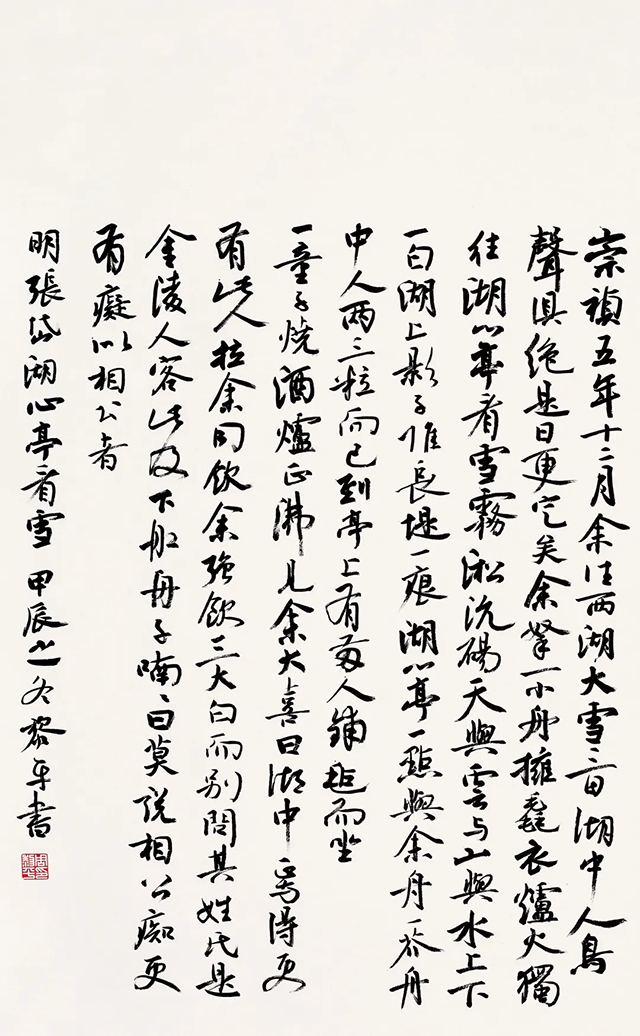 崇禎五年十二月余住西湖大雪三日湖中人鳥
聲俱絕是日更定矣余拏一小舟擁毳衣爐火獨
往湖心亭看雪霧淞沆碭天與雲与山與水上下
一白湖上影子惟長堤一痕湖心亭一點與余舟一芥舟
中人兩三粒而已到亭上有兩人鋪氈而坐
一童子燒酒爐正沸見余大喜曰湖中焉得更
有此人拉余同飲余強飲三大白而別問其姓氏是
金陵人客此及下船舟子喃〻曰莫說相公痴更
有癡似相公者
明張岱湖心亭看雪 甲辰之冬黎平書